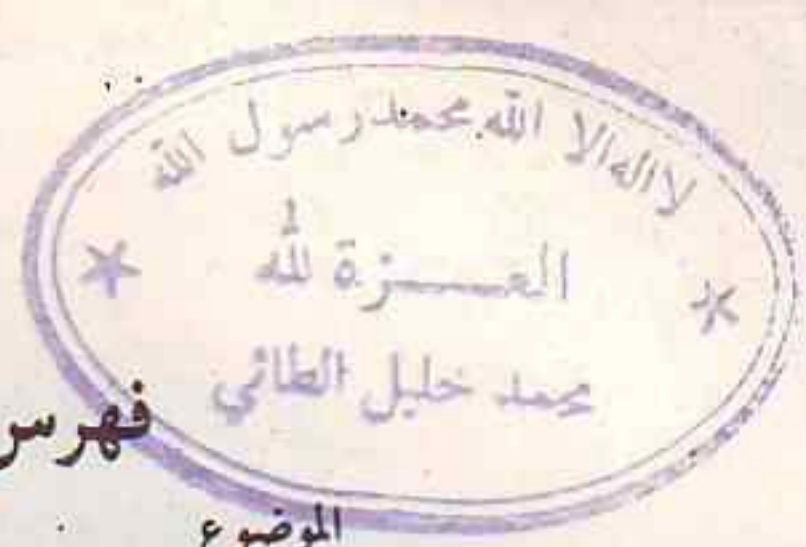 لا اله الا الله محمد رسول الله
العـــــزة لله
محمد خليل الطائي
فهرس
الموضوع